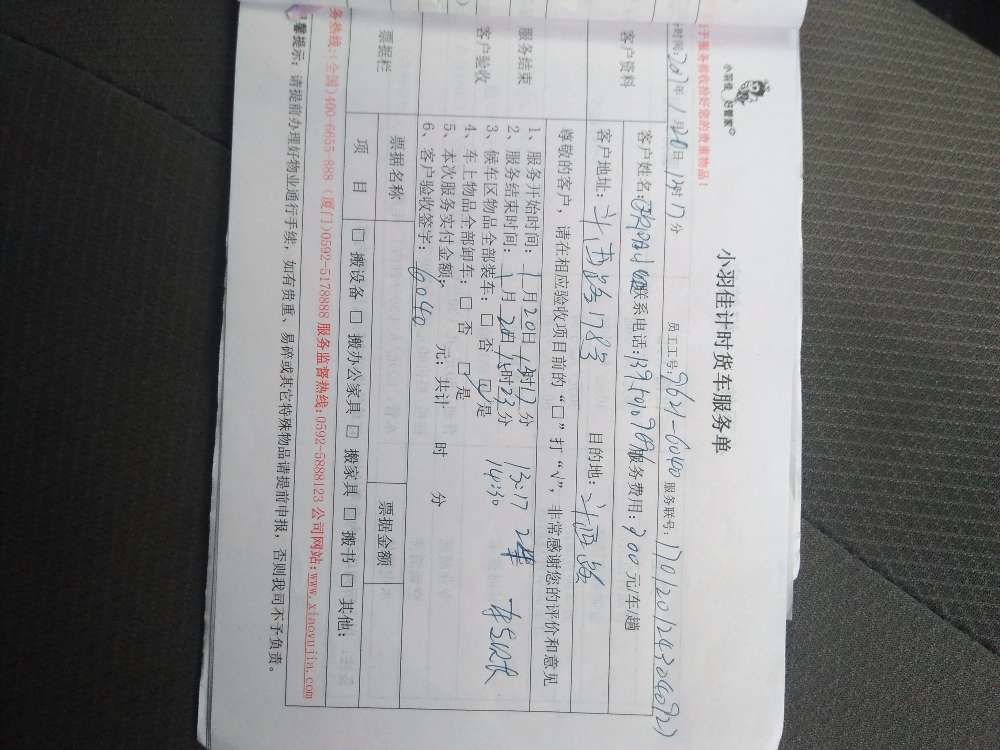 于服务前收拾好您的贵重物品!
小羽佳 好管家
小羽佳计时货车服务单
时间:2017年1月20日12时17分 员工工号:9621-6040 服务联号:170120124304092
客户资料
客户姓名: 联系电话: 服务费用:200元/车/趟
客户地址:斗西路1783 目的地:斗西路
服务结束
客户验收
尊敬的客户,请在相应验收项目前的“□”打“√”,非常感谢您的评价和意见
1、服务开始时间:1月20日13时17分 13:17 2单
2、服务结束时间:1月20日15时23分 14:30
3、候车区物品全部装车:□ 否 ☑是
4、车上物品全部卸车:□ 否 ☑是
5、本次服务实付金额: 元;共计 时 分
6、客户验收签字:6040
票据栏
票据名称 票据金额
项 目 □ 搬设备 □ 搬办公家具 □ 搬家具 □ 搬书 □ 其他:
务热线:(全国)400-6655-888 (厦门)0592-5178888 服务监督热线:0592-5888123 公司网站:www.xiaoyujia.com
馨提示:请提前办理好物业通行手续,如有贵重、易碎或其它特殊物品请提前申报,否则我司不予负责。